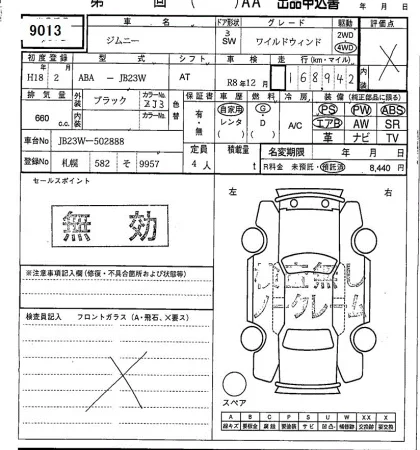 第 回 ( )AA 出品申込書 年 月 日
9013
車名 ドア形状 グレード 駆動 評価点
ジムニー 3 SW ワイルドウィンド 2WD 4WD
初度登録 型式 シフト 車検 走行(km・マイル) 内装
H18年 2月 ABA － JB23W AT R8年12月 168942
排気量 外装 ブラック カラーNo. ZJ3 色替 保証書 車歴 燃料 冷房 装備(純正部品に限る)
660 c.c. 内装 カラーNo. 有・無 自家用 レンタ G・D A/C PS PW ABS
エアB AW SR
革 ナビ TV
車台No JB23W－502888 定員 積載量 名変期限 年 月 日
登録No 札幌 582 そ 9957 4人 t R料金 未預託・預託済 8,440 円
セールスポイント
無効
左 右
検査無し
ノークレーム
※注意事項記入欄(修復・不具合箇所および状態等)
検査員記入 フロントガラス(A・飛石、X要ス)
スペア
A B C P S U W X XX